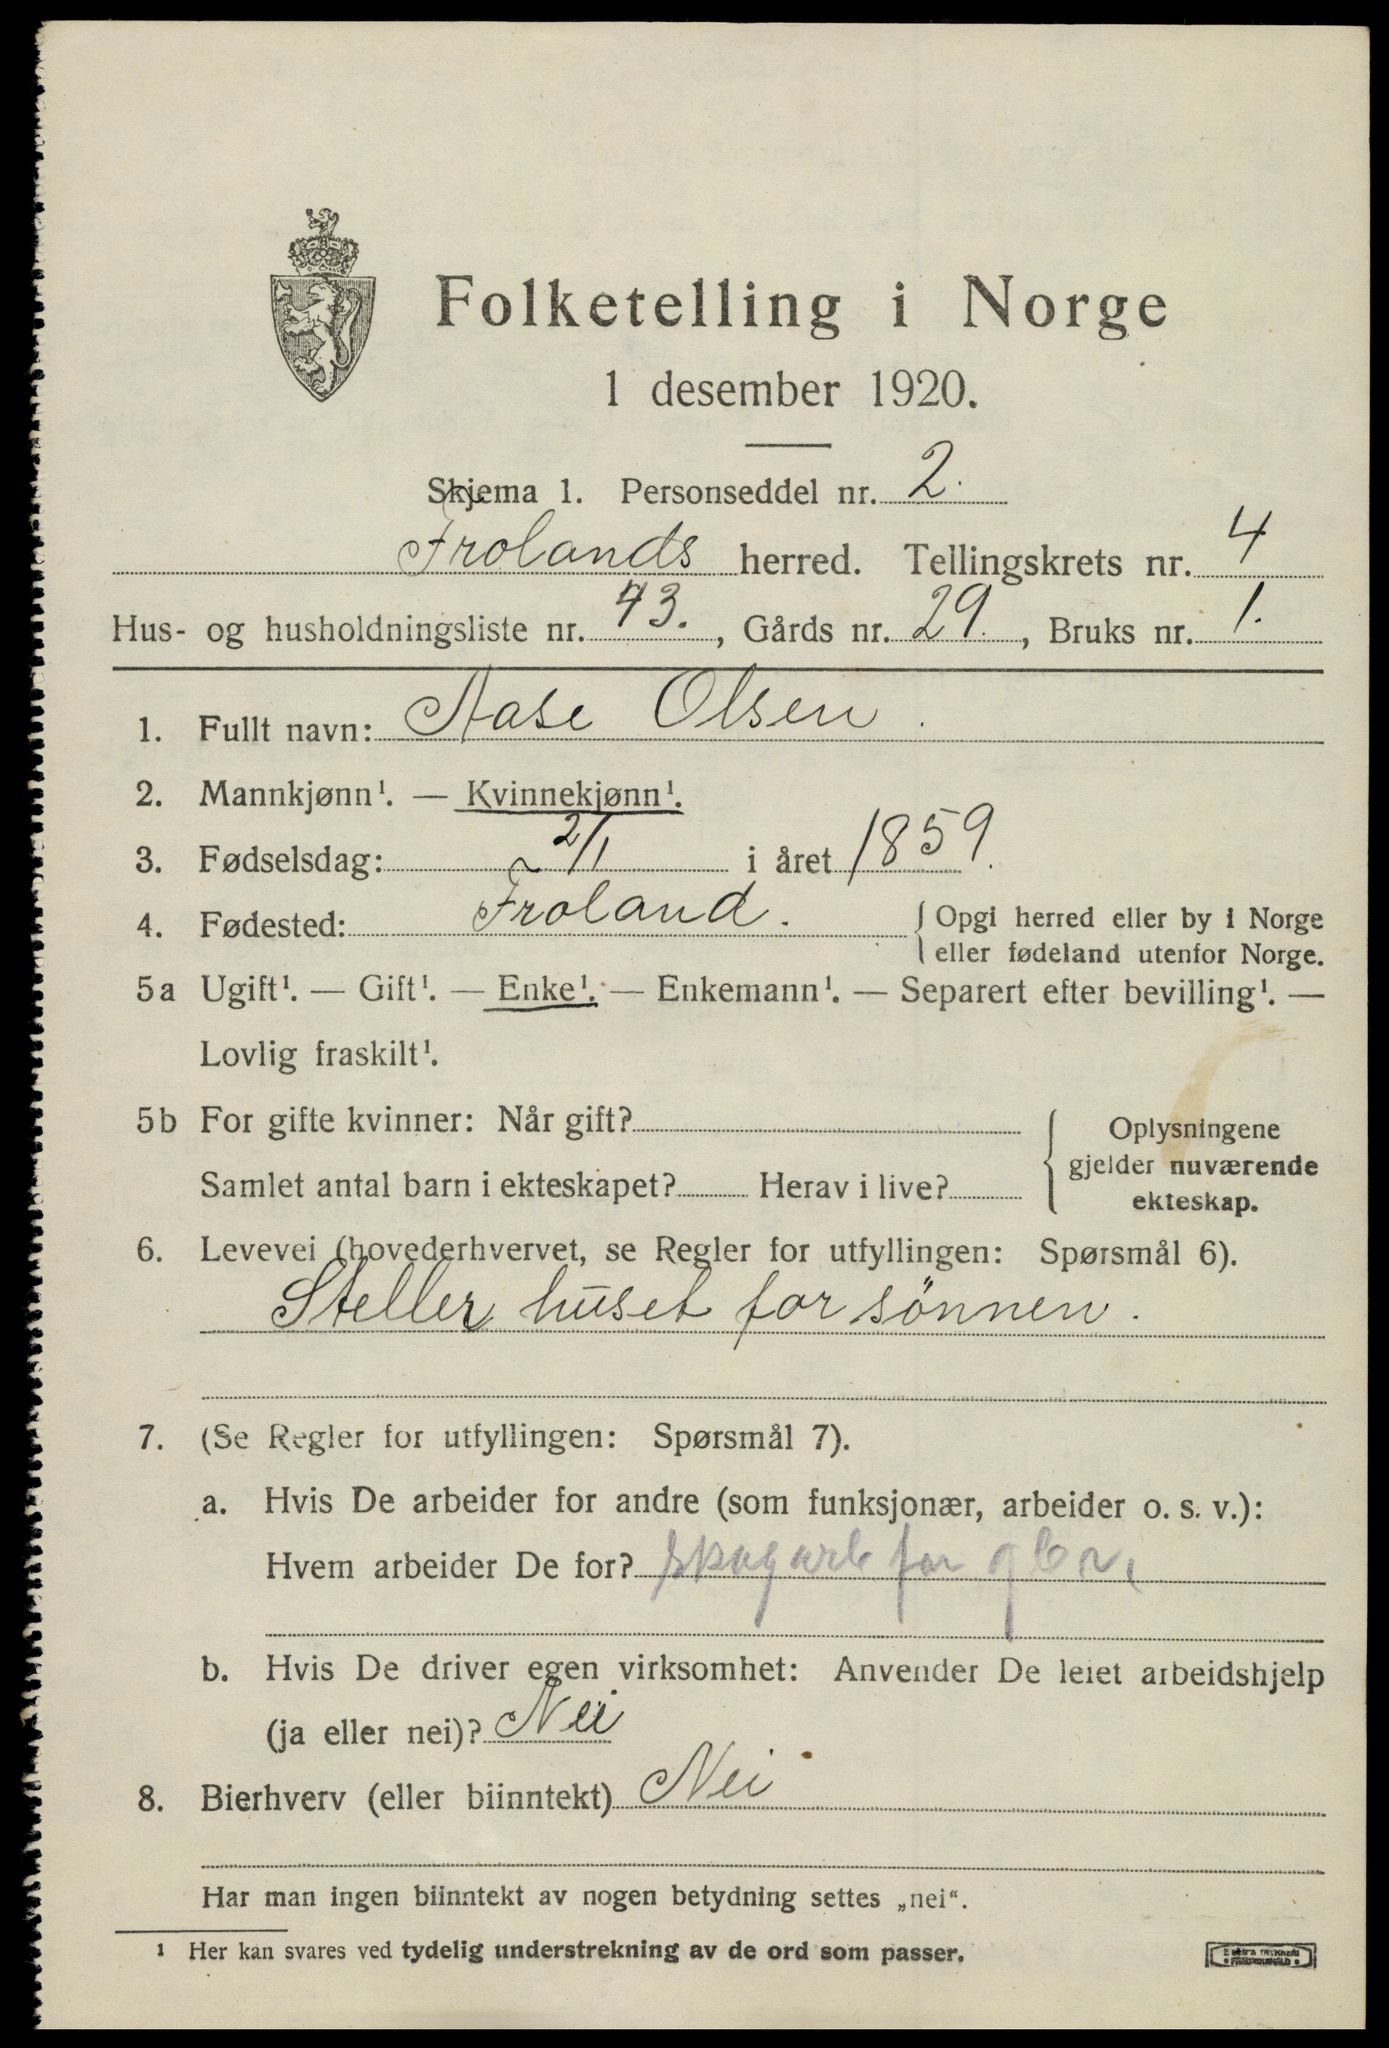 Folketelling i Norge
1 desember 1920.
Skjema 1. Personseddel nr. 2.
Frolands herred. Tellingskrets nr. 4
Hus- og husholdningsliste nr. 43., Gårds nr. 29., Bruks nr. 1.
1. Fullt navn: Aase Olsen.
2. Mannkjønn¹. — Kvinnekjønn¹.
3. Fødselsdag: 2/1 i året 1859.
4. Fødested: Froland. { Opgi herred eller by i Norge
eller fødeland utenfor Norge.
5a Ugift¹. — Gift¹. — Enke¹. — Enkemann¹. — Separert efter bevilling¹. —
Lovlig fraskilt¹.
5b For gifte kvinner: Når gift? { Oplysningene
gjelder nuværende
Samlet antal barn i ekteskapet? Herav i live?
ekteskap.
6. Levevei (hovederhvervet, se Regler for utfyllingen: Spørsmål 6).
Steller huset for sönnen.
7. (Se Regler for utfyllingen: Spørsmål 7).
a. Hvis De arbeider for andre (som funksjonær, arbeider o. s. v.):
Hvem arbeider De for? skogarb for
b. Hvis De driver egen virksomhet: Anvender De leiet arbeidshjelp
(ja eller nei)? Nei
8. Bierhverv (eller biinntekt) Nei
Har man ingen biinntekt av nogen betydning settes „nei“.
1 Her kan svares ved tydelig understrekning av de ord som passer.